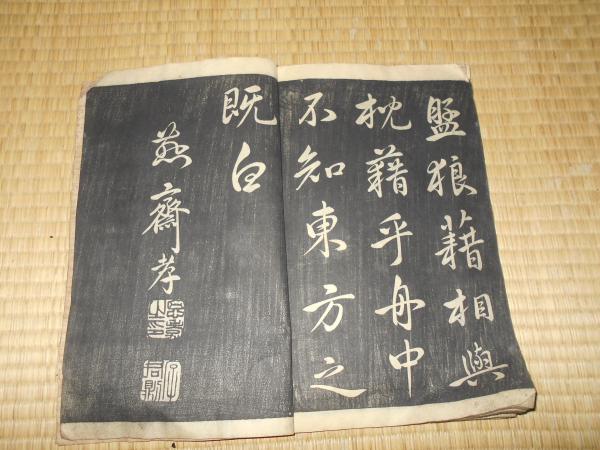 盃狼藉相與
枕藉乎舟中
不知東方之
既白
燕齋孝